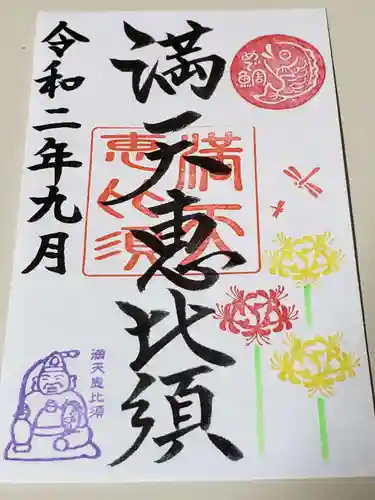 満天恵比須
令和二年九月
満天恵比須
めで鯛
満天恵比須